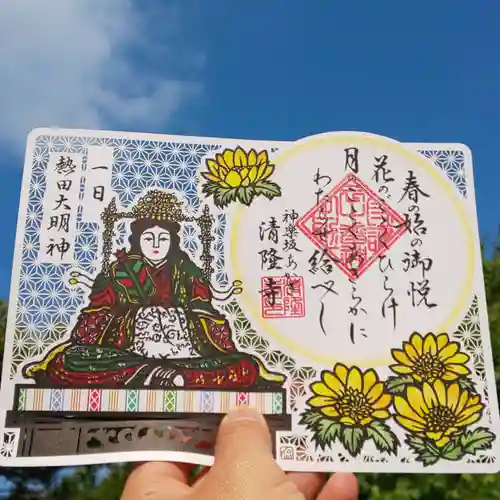 春の始の御悦
花のごとくひらけ
月のごとくあきらかに
わたらせ給べし
神楽坂あかぎ
清隆寺
一日
熱田大明神